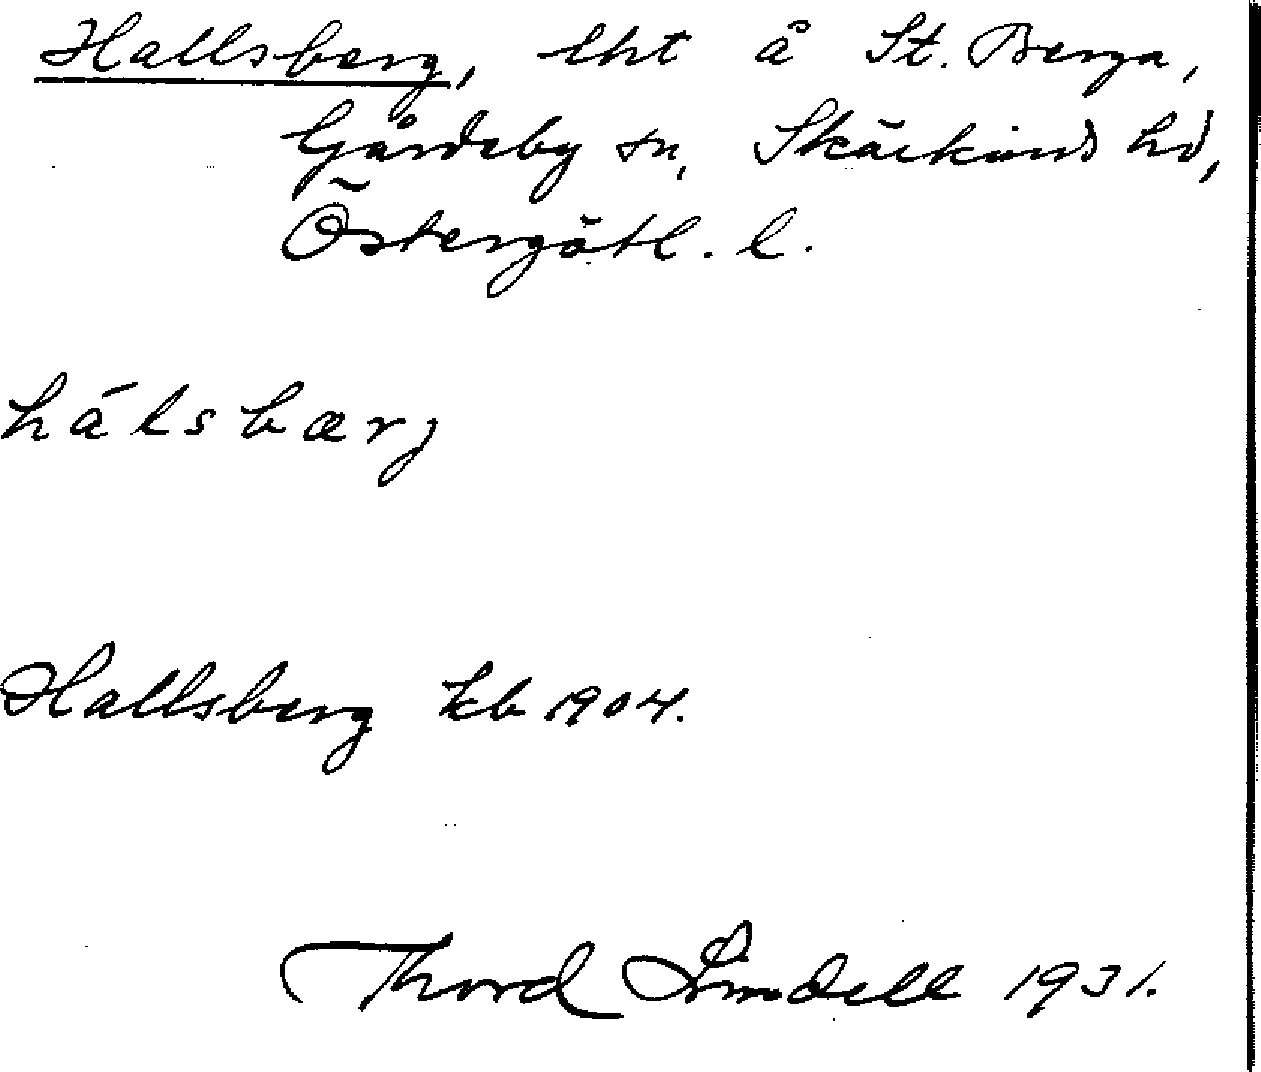 Hallsberg, lht å St. Berga,
Gårdeby sn, Skärkinds hd,
Östergötl. l.
hálsbærj
Hallsberg kb 1904.
Thord Lindell 1931.